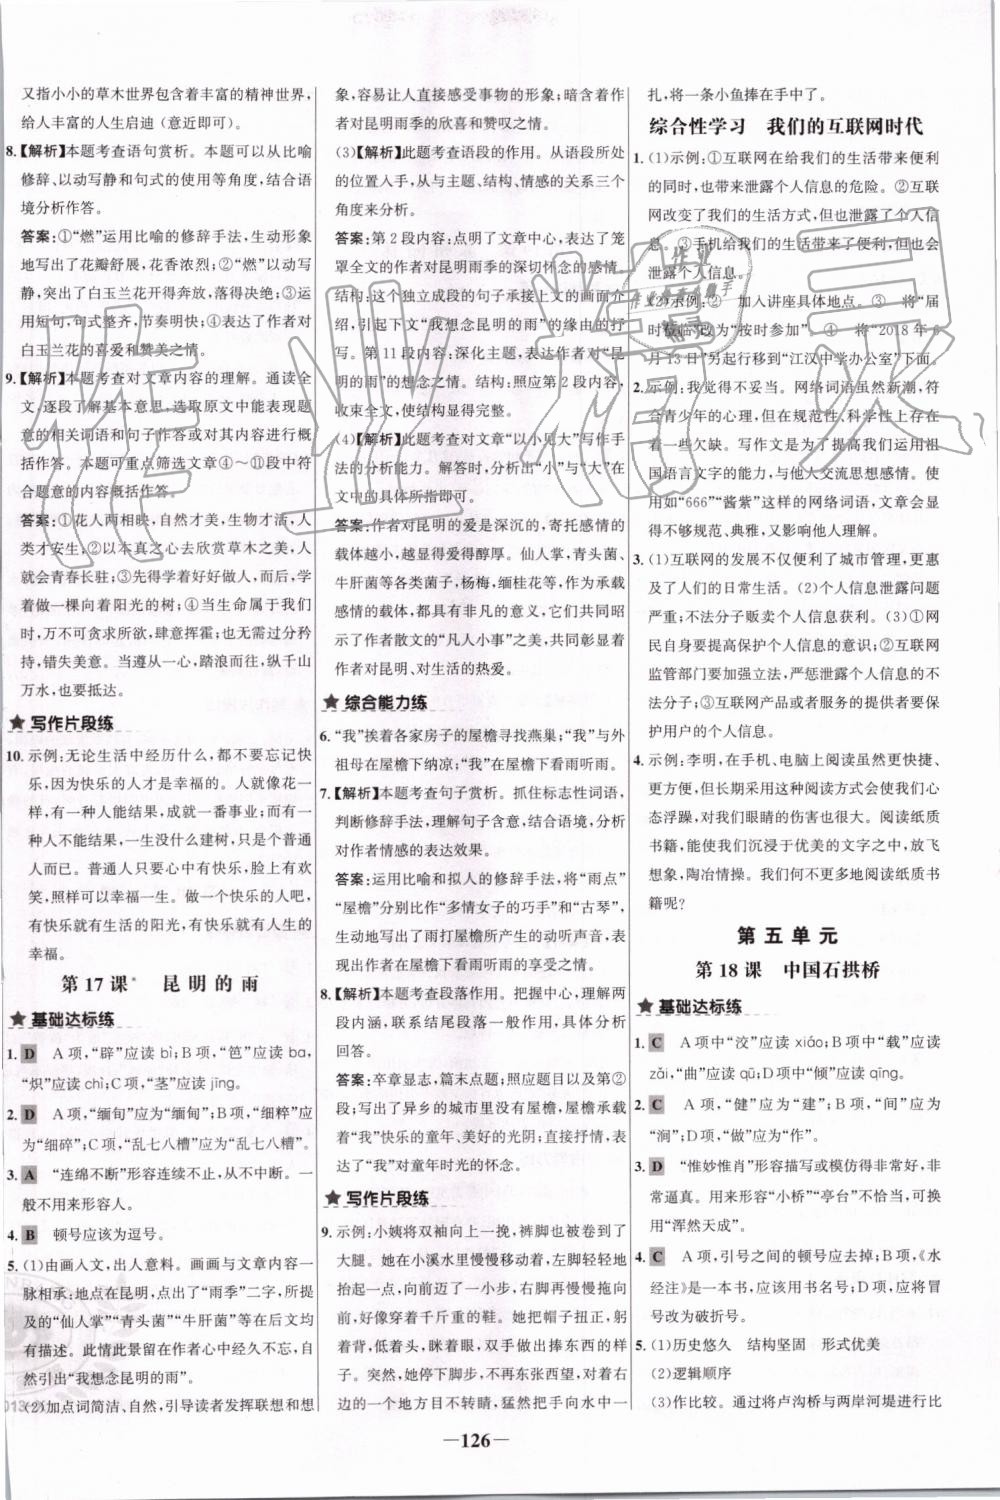 又指小小的草木世界包含着丰富的精神世界,
给人丰富的人生启迪(意近即可)。
8.【解析】本题考查语句赏析。本题可以从比喻
修辞、以动写静和句式的使用等角度,结合语
境分析作答。
答案:①“燃”运用比喻的修辞手法,生动形象
地写出了花瓣舒展,花香浓烈;②“燃”以动写
静,突出了白玉兰花开得奔放,落得决绝;③运
用短句,句式整齐,节奏明快;④表达了作者对
白玉兰花的喜爱和赞美之情。
9.【解析】本题考查对文章内容的理解。通读全
文,逐段了解基本意思,选取原文中能表现题
意的相关词语和句子作答或对其内容进行概
括作答。本题可重点筛选文章④~⑪段中符
合题意的内容概括作答。
答案:①花人两相映,自然才美,生物才活,人
类才安生;②以本真之心去欣赏草木之美,人
就会青春长驻;③先得学着好好做人,而后学
会像大树一样做一棵向着阳光的树;④当生命属于我们
时,万不可贪求所欲,肆意挥霍;也无需过分矜
持,错失美意。当遵从一心,踏浪而远,纵千山
万水,也要抵达。
★写作片段练
10. 示例:无论生活中经历什么,都不要忘记快
乐,因为快乐的人才是幸福的。人就像花一
样,有一种人能结果,成就一番事业;而有一
种人不能结果,一生没什么建树,只是个普通
人而已。普通人只要心中有快乐,脸上有欢
笑,照样可以幸福一生。做一个快乐的人吧,
有快乐就有生活的阳光,有快乐就有人生的
幸福。
第17课* 昆明的雨
★基础达标练
1. D A项,“辟”应读bì;B项,“笆”应读ba,
“炽”应读chì;C项,“茎”应读jīng。
2. D A项,“缅甸”应为“缅甸”;B项,“细粹”应
为“细碎”;C项,“乱七八槽”应为“乱七八糟”。
3. A “连绵不断”形容连续不止,从不中断。一
般不用来形容人。
4. B 顿号应该为逗号。
5. (1)由画入文,出人意料。画画与写文章一
脉相承:地点在昆明,点出了“雨季”二字,所提
及的“仙人掌”“青头菌”“牛肝菌”等在后文均
有描述。此情此景留在作者心中经久不忘,自
然引出“我想念昆明的雨”。
(2)加点词简洁、自然,引导读者发挥联想和想
象,容易让人直接感受事物的形象;暗含着作
者对昆明雨季的欣喜和赞叹之情。
(3)【解析】此题考查语段的作用。从语段所处
的位置入手,从与主题、结构、情感的关系三个
角度来分析。
答案:第2段内容:点明了文章中心,表达了笼
罩全文的作者对昆明雨季的深切怀念的感情。
结构:这个独立成段的句子承接上文的画面介
绍,引起下文“我想念昆明的雨”的缘由的抒
写。第11段内容:深化主题,表达作者对“昆
明的雨”的想念之情。结构:照应第2段内容,
收束全文,使结构显得完整。
(4)【解析】此题考查对文章“以小见大”写作手
法的分析能力。解答时,分析出“小”与“大”在
文中的具体所指即可。
答案:作者对昆明的爱是深沉的,寄托感情的
载体越小,越显得爱得醇厚。仙人掌,青头菌、
牛肝菌等各类菌子,杨梅,缅桂花等,作为承载
感情的载体,都具有非凡的意义,它们共同昭
示了作者散文的“凡人小事”之美,共同彰显着
作者对昆明、对生活的热爱。
★综合能力练
6. “我”挨着各家房子的屋檐寻找燕巢;“我”与外
祖母在屋檐下纳凉;“我”在屋檐下看雨听雨。
7.【解析】本题考查句子赏析。抓住标志性词语,
判断修辞手法,理解句子含意,结合语境,分析
对作者情感的表达效果。
答案:运用比喻和拟人的修辞手法,将“雨点”
“屋檐”分别比作“多情女子的巧手”和“古琴”,
生动形象地写出了雨打屋檐所产生的动听声音,表
现了“我”在屋檐下看雨听雨时愉悦的心情。
8.【解析】本题考查段落作用。把握中心,理解两
段内涵,联系结尾段落一般作用,具体分析
回答。
答案:卒章显志,篇末点题;照应题目及第②
段;描写出了异乡的城市里没有屋檐,屋檐下承
载了“我”快乐的童年、美好的光阴;直接抒情,表
达了“我”对童年时光的怀念。
★写作片段练
9. 示例:小姨将双袖向上一挽,裤脚也被卷到了
大腿。她在小溪水里慢慢移动,双脚慢慢地
抬起,向前迈了一小步,右脚再慢慢拖向前,
像穿着千斤重的鞋。她把帽子扭正,躬
着腰,低着头,双手做出捧东西的样子。
她突然停了下来,不再东张西望,只是对着水的
一个地方目不转睛,猛然把手向水中一
扎,将一条小鱼捧在手中了。
综合性学习 我们的互联网时代
1. (1)示例:①互联网在给我们的生活带来便利
的同时,也带来泄露个人信息的危险。②互联
网改变了我们的生活方式,但也泄露了个人信
息。③手机给我们的生活带来了便利,但也会
泄露个人信息。
(2)示例:② 加入讲座具体地点。③ 将“届
时莅临”改为“按时参加”。④ 将“2018年6
月13日”另起行移到“江汉中学办公室”下面。
2. 示例:我觉得不妥当。网络词语虽然新潮,符
合青少年的心理,但在规范性、科学性上存在
着一些欠缺。写作文是为了提高我们运用祖
国语言文字的能力,与他人交流思想感情。使
用如“666”“酱紫”这样的网络词语,文章会显
得不够规范、典雅,又影响他人理解。
3. (1)互联网的发展不仅便利了城市管理,更惠
及了人们的日常生活。(2)个人信息泄露问题
严重;不法分子贩卖个人信息获利。(3)①网
民自身要提高保护个人信息的意识;②互联网
监管部门要加强立法,严惩泄露个人信息的不
法分子;③互联网产品或者服务的提供者要保
护用户的个人信息。
4. 示例:李明,在手机、电脑上阅读虽然更快捷、
更方便,但长期采用这种阅读方式会使我们心
态浮躁,对我们眼睛的伤害也很大。阅读纸质
书籍,能使我们沉浸于优美的文字之中,放飞
想象,陶冶情操。我们何不更多地阅读纸质书
籍呢?
第五单元
第18课 中国石拱桥
★基础达标练
1. C A项中“洨”应读xiáo;B项中“载”应读
zǎi,“曲”应读qū;D项中“倾”应读qīng。
2. C A项,“健”应为“建”;B项,“间”应为
“涧”;D项,“做”应为“作”。
3. D “惟妙惟肖”形容描写或模仿得非常好,非
常逼真。用来形容“小桥”“亭台”不恰当,可换
用“浑然天成”。
4. C A项,引号之间的顿号应去掉;B项,《水
经注》是一本书,应该用书名号;D项,应将冒
号改为破折号。
5. (1)历史悠久 结构坚固 形式优美
(2)逻辑顺序
(3)作比较。通过将卢沟桥与两岸河堤进行比
—126—